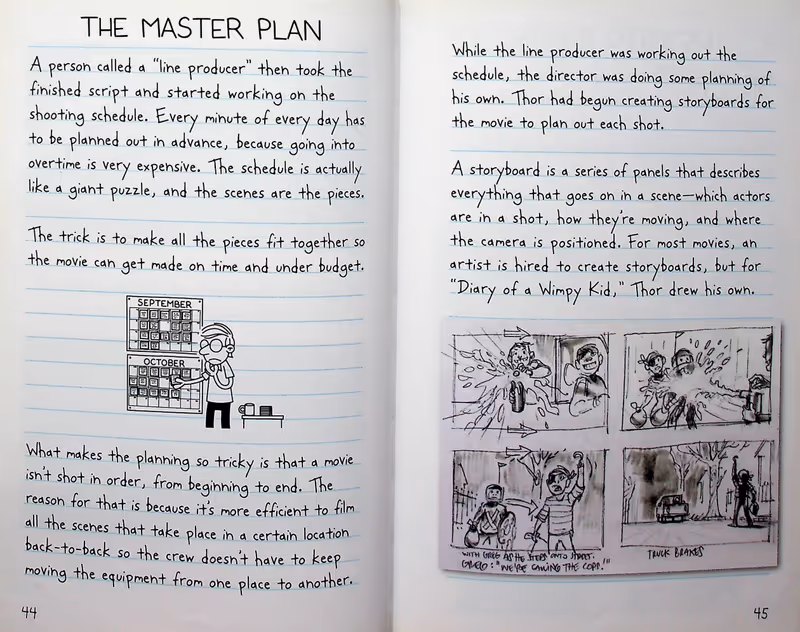 THE MASTER PLAN
A person called a "line producer" then took the
finished script and started working on the
shooting schedule. Every minute of every day has
to be planned out in advance, because going into
overtime is very expensive. The schedule is actually
like a giant puzzle, and the scenes are the pieces.
The trick is to make all the pieces fit together so
the movie can get made on time and under budget.
SEPTEMBER
OCTOBER
What makes the planning so tricky is that a movie
isn't shot in order, from beginning to end. The
reason for that is because it's more efficient to film
all the scenes that take place in a certain location
back-to-back so the crew doesn't have to keep
moving the equipment from one place to another.
44
While the line producer was working out the
schedule, the director was doing some planning of
his own. Thor had begun creating storyboards for
the movie to plan out each shot.
A storyboard is a series of panels that describes
everything that goes on in a scene—which actors
are in a shot, how they're moving, and where
the camera is positioned. For most movies, an
artist is hired to create storyboards, but for
"Diary of a Wimpy Kid," Thor drew his own.
WITH GREG AS HE STEPS ONTO STREET.
GREG: "WE'RE CALLING THE COPS!"
TRUCK BRAKES
45